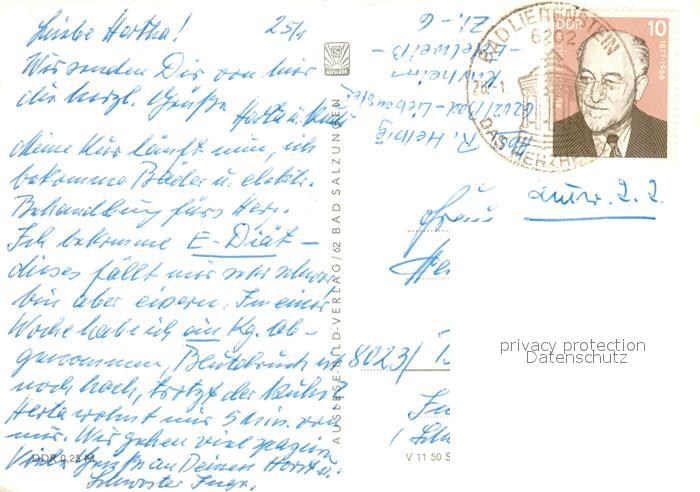 Liebe Hertha! 25/1
Wir senden Dir von hier
die herzl. Grüße Herta u. Rudi
Meine Kur läuft nun, ich
bekomme Bäder u. elektr.
Behandlung fürs Herz.
Ich bekomme E-Diät –
dieses fällt mir sehr schwer,
bin aber eisern. In einer
Woche habe ich ein Kg. ab-
genommen, Blutdruck ist
noch hoch, trotz der Ruhe.
Herta wohnt nur 5 Min. von
mir. Wir gehen viel spazieren
Viele Grüße an Deinen Horst u.
Schwester Inge.
DDR 0,25 M
AUSLESE
AUSLESE-BILD-VERLAG / 62 BAD SALZUNGEN
V 11 50
R. Helbig
6202 / Bad-Liebenstein
Kurheim
-Edelweiß-
Zi.-6
BAD LIEBENSTEIN
6202
DAS HERZHEILBAD
DDR 10
1877-1966
antw. 2.2.
Frau
8023/
privacy protection
Datenschutz